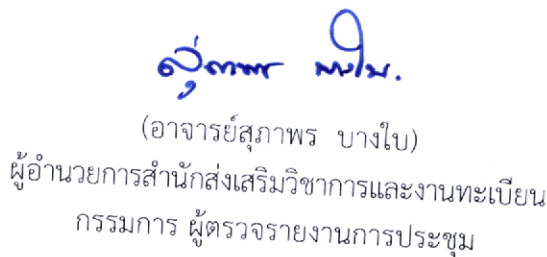 สุภาพร บางใบ.
(อาจารย์สุภาพร บางใบ)
ผู้อำนวยการสำนักส่งเสริมวิชาการและงานทะเบียน
กรรมการ ผู้ตรวจรายงานการประชุม